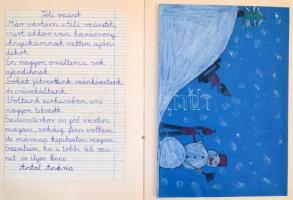 Téli szünet
Már vártam a téli szünetet,
mert akkor van karácsony.
Anyukámnak vettem aján-
dékot.
Én nagyon örültem a sok
ajándéknak.
Sokat játszottunk, szánkóztunk,
és
Voltunk cirkuszban, ami
nagyon tetszett.
Szilveszterkor is jól éreztem
magam, sokáig fenn voltam,
de másnap kipihentem magam.
Szeretném, ha a többi téli szü-
net is ilyen lenne.
Antal Andrea